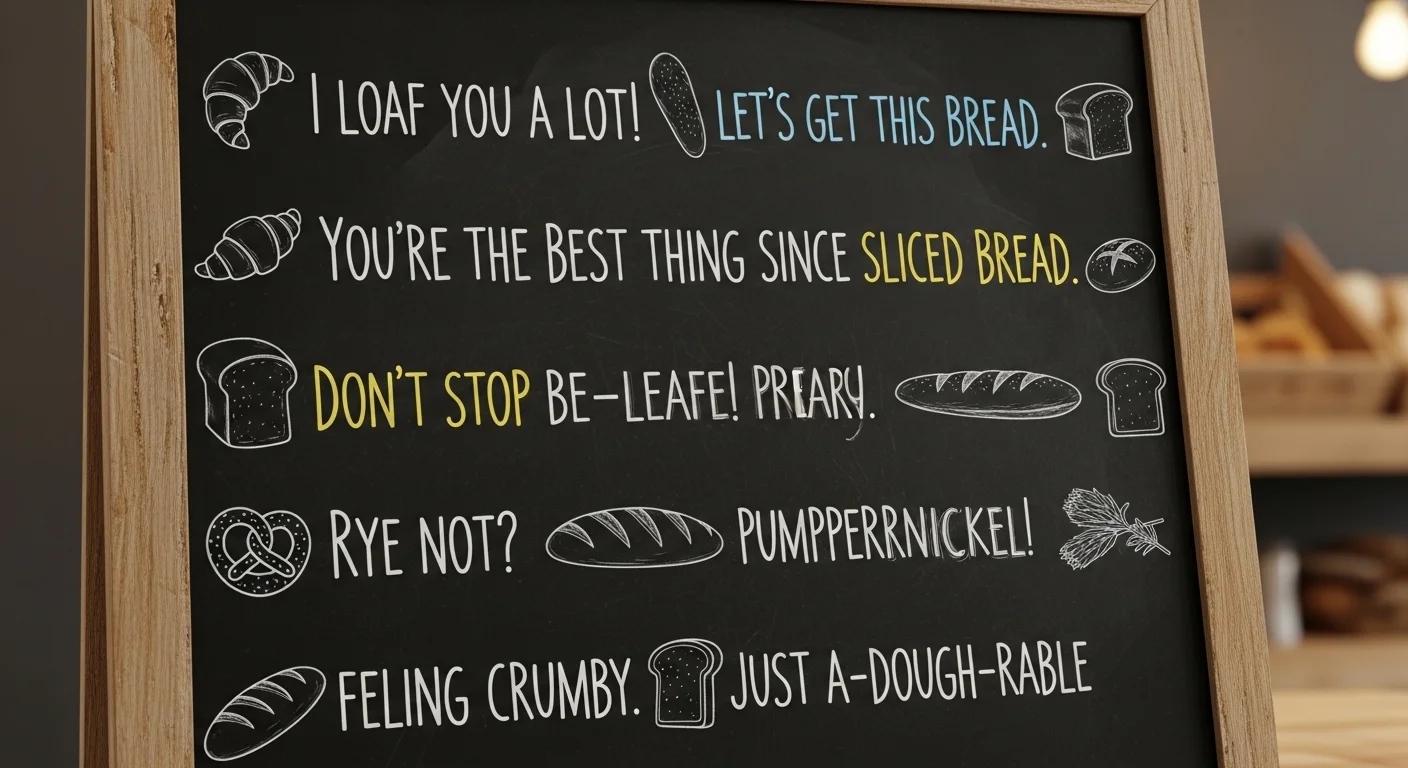 I LOAF YOU A LOT! LET'S GET THIS BREAD.
YOU'RE THE BEST THING SINCE SLICED BREAD.
DON'T STOP BE-LEAFE!
RYE NOT? PUMPPERRNICKEL!
FELING CRUMBY. JUST A-DOUGH-RABLE